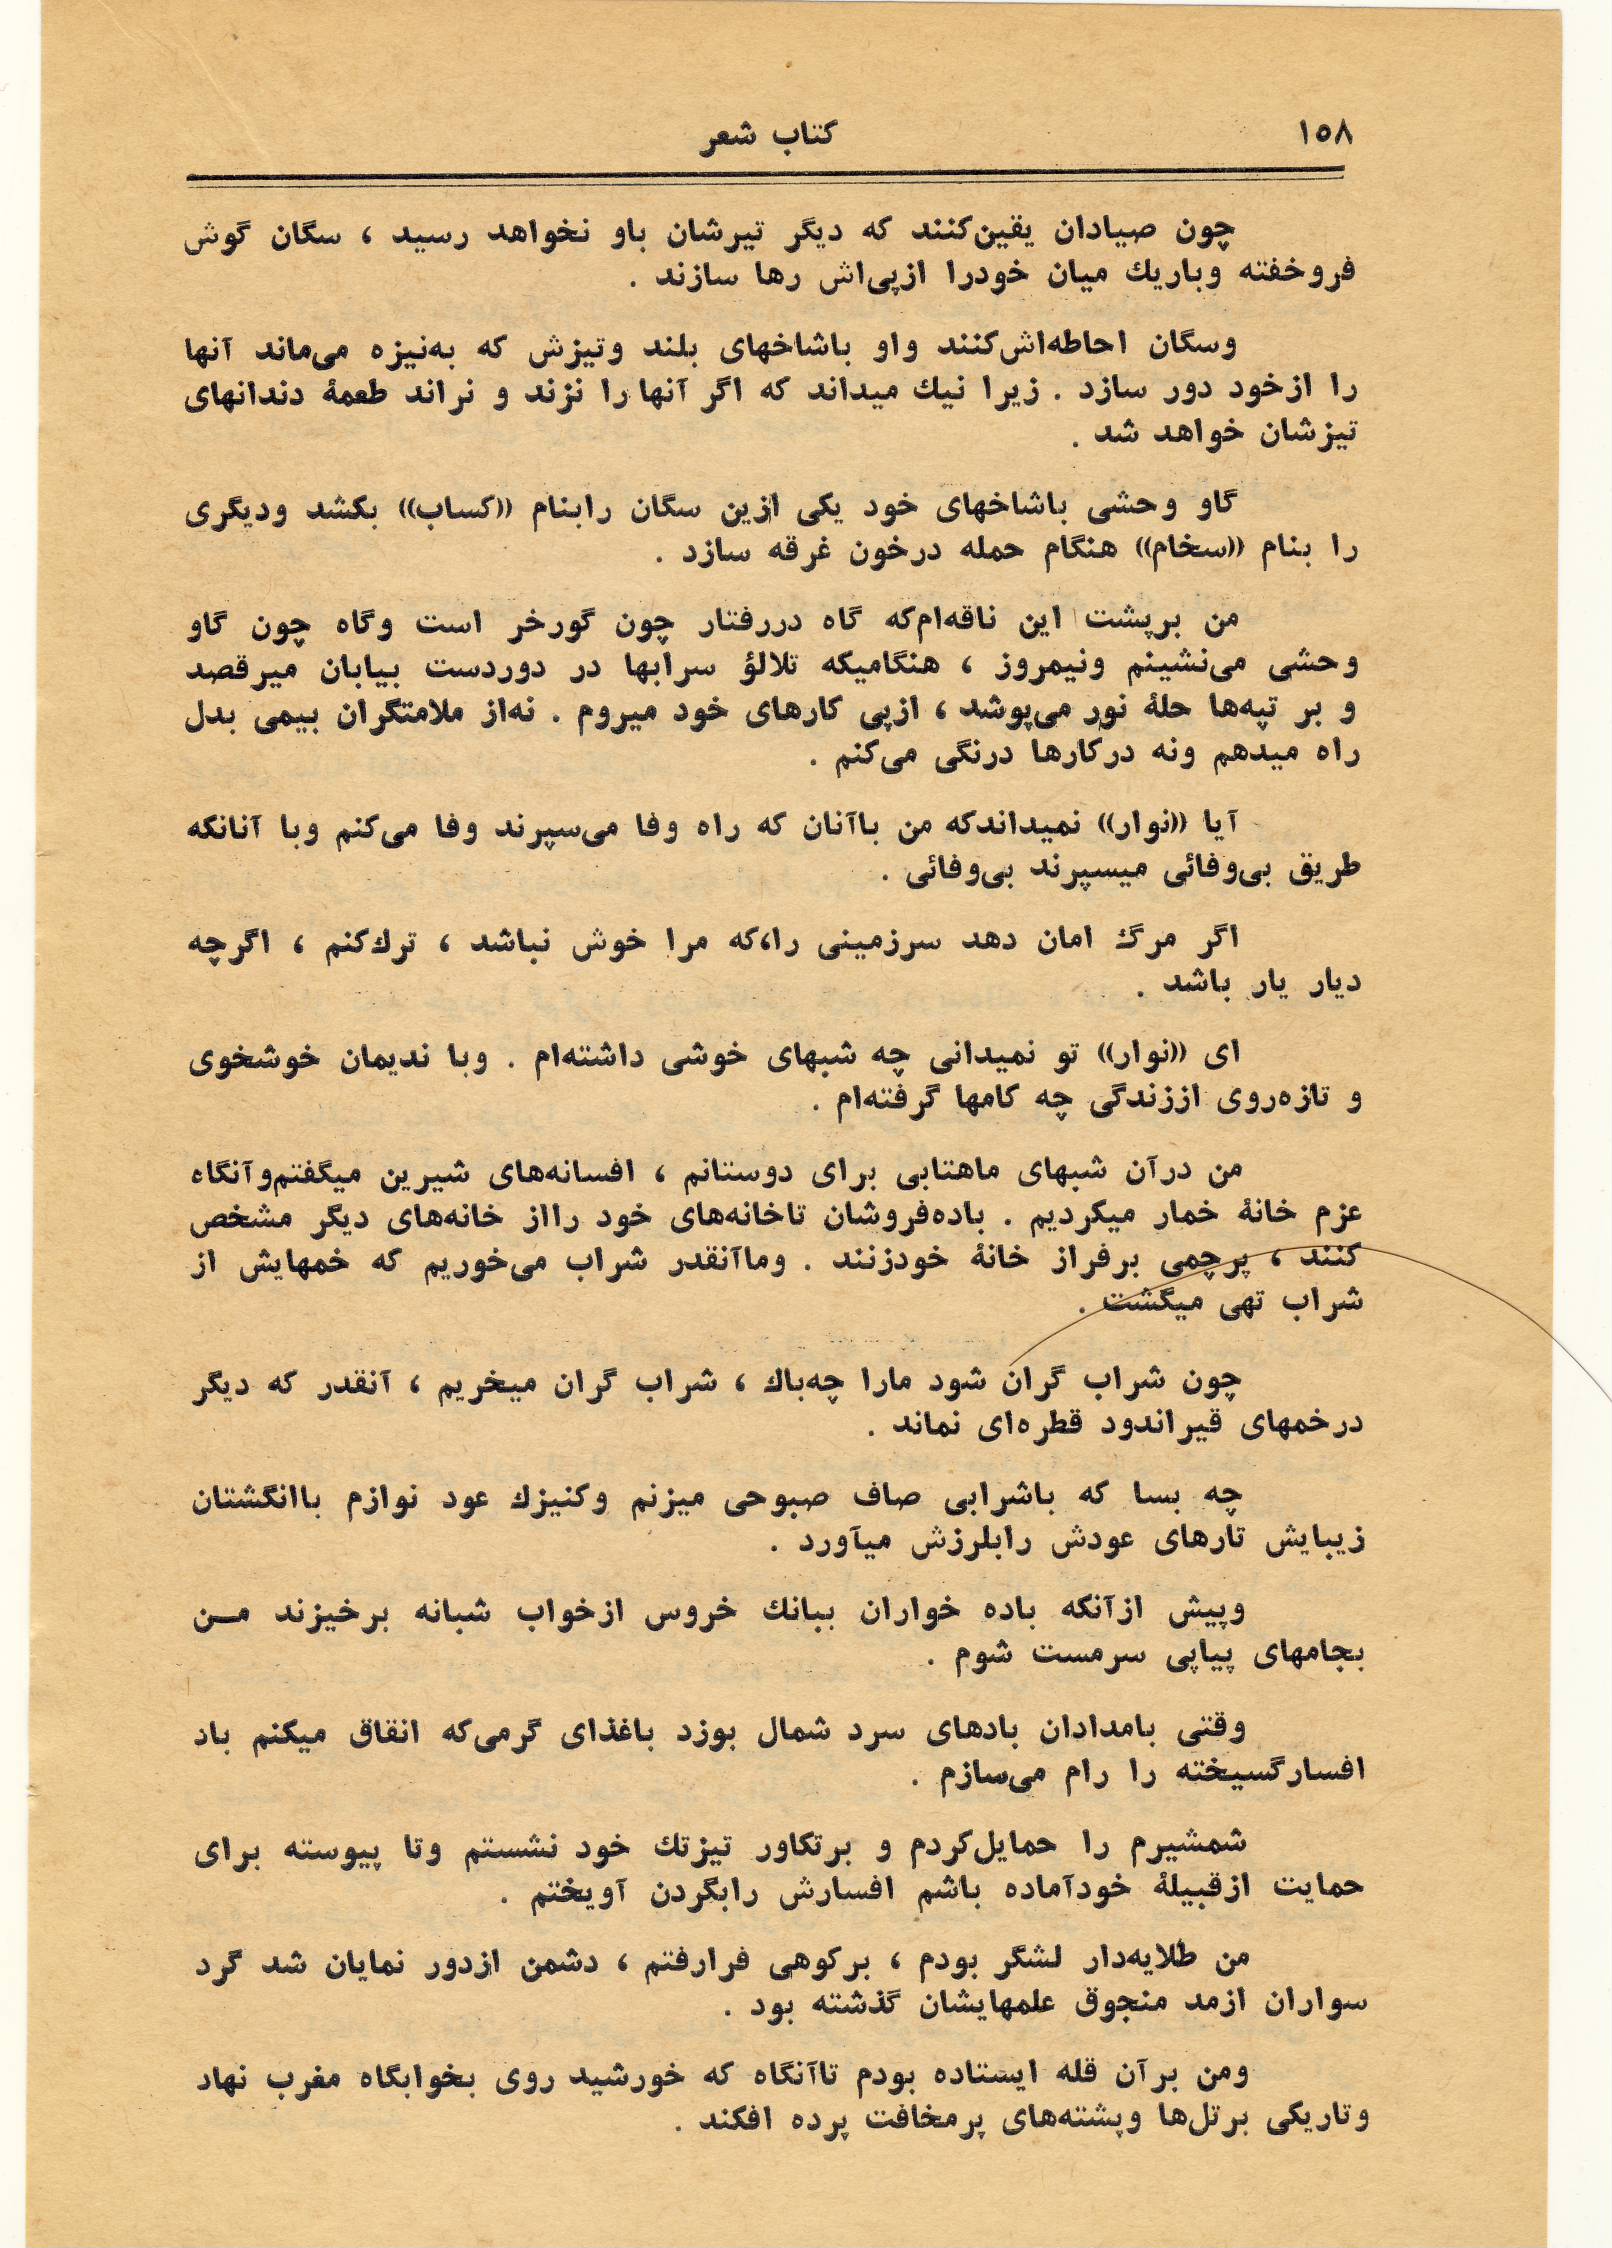 ۱۵۸
کتاب شعر
چون صیادان یقین‌کنند که دیگر تیرشان باو نخواهد رسید ، سگان گوش
فروخفته وباریك میان خودرا ازپی‌اش رها سازند .
وسگان احاطه‌اش‌کنند واو باشاخهای بلند وتیزش که به‌نیزه می‌ماند آنها
را ازخود دور سازد . زیرا نیك میداند که اگر آنها را نزند و نراند طعمهٔ دندانهای
تیزشان خواهد شد .
گاو وحشی باشاخهای خود یکی ازین سگان رابنام ((کساب)) بکشد ودیگری
را بنام ((سخام)) هنگام حمله درخون غرقه سازد .
من برپشت این ناقه‌ام‌که گاه دررفتار چون گورخر است وگاه چون گاو
وحشی می‌نشینم ونیمروز ، هنگامیکه تلالؤ سرابها در دوردست بیابان میرقصد
و بر تپه‌ها حلهٔ نور می‌پوشد ، ازپی کارهای خود میروم . نه‌از ملامتگران بیمی بدل
راه میدهم ونه درکارها درنگی می‌کنم .
آیا ((نوار)) نمیداندکه من باآنان که راه وفا می‌سپرند وفا می‌کنم وبا آنانکه
طریق بی‌وفائی میسپرند بی‌وفائی .
اگر مرگ امان دهد سرزمینی را،که مرا خوش نباشد ، ترك‌کنم ، اگرچه
دیار یار باشد .
ای ((نوار)) تو نمیدانی چه شبهای خوشی داشته‌ام . وبا ندیمان خوشخوی
و تازه‌روی اززندگی چه کامها گرفته‌ام .
من درآن شبهای ماهتابی برای دوستانم ، افسانه‌های شیرین میگفتم‌وآنگاه
عزم خانهٔ خمار میکردیم . باده‌فروشان تاخانه‌های خود رااز خانه‌های دیگر مشخص
کنند ، پرچمی برفراز خانهٔ خودزنند . وماآنقدر شراب می‌خوریم که خمهایش از
شراب تهی میگشت .
چون شراب گران شود مارا چه‌باك ، شراب گران میخریم ، آنقدر که دیگر
درخمهای قیراندود قطره‌ای نماند .
چه بسا که باشرابی صاف صبوحی میزنم وکنیزك عود نوازم باانگشتان
زیبایش تارهای عودش رابلرزش میآورد .
وپیش ازآنکه باده خواران ببانك خروس ازخواب شبانه برخیزند مـن
بجامهای پیاپی سرمست شوم .
وقتی بامدادان بادهای سرد شمال بوزد باغذای گرمی‌که انقاق میکنم باد
افسارگسیخته را رام می‌سازم .
شمشیرم را حمایل‌کردم و برتکاور تیزتك خود نشستم وتا پیوسته برای
حمایت ازقبیلهٔ خودآماده باشم افسارش رابگردن آویختم .
من طلایه‌دار لشگر بودم ، برکوهی فرارفتم ، دشمن ازدور نمایان شد گرد
سواران ازمد منجوق علمهایشان گذشته بود .
ومن برآن قله ایستاده بودم تاآنگاه که خورشید روی بخوابگاه مغرب نهاد
وتاریکی برتل‌ها وپشته‌های پرمخافت پرده افکند .